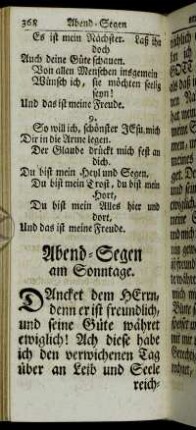 368 Abend-Segen
Es ist mein Nächster. Laß ihn
doch
Auch deine Güte schauen.
Von allen Menschen insgemein
Wünsch ich, sie möchten seelig
seyn!
Und das ist meine Freude.
9.
So will ich, schönster JEsu, mich
Dir in die Arme legen.
Der Glaube drückt mich fest an
dich.
Du bist mein Heyl und Segen,
Du bist mein Trost, du bist mein
Hort,
Du bist mein Alles hier und
dort,
Und das ist meine Freude.
Abend-Segen
am Sonntage.
DAncket dem HErrn,
denn er ist freundlich,
und seine Güte währet
ewiglich! Ach diese habe
ich den verwichenen Tag
über an Leib und Seele
reich-